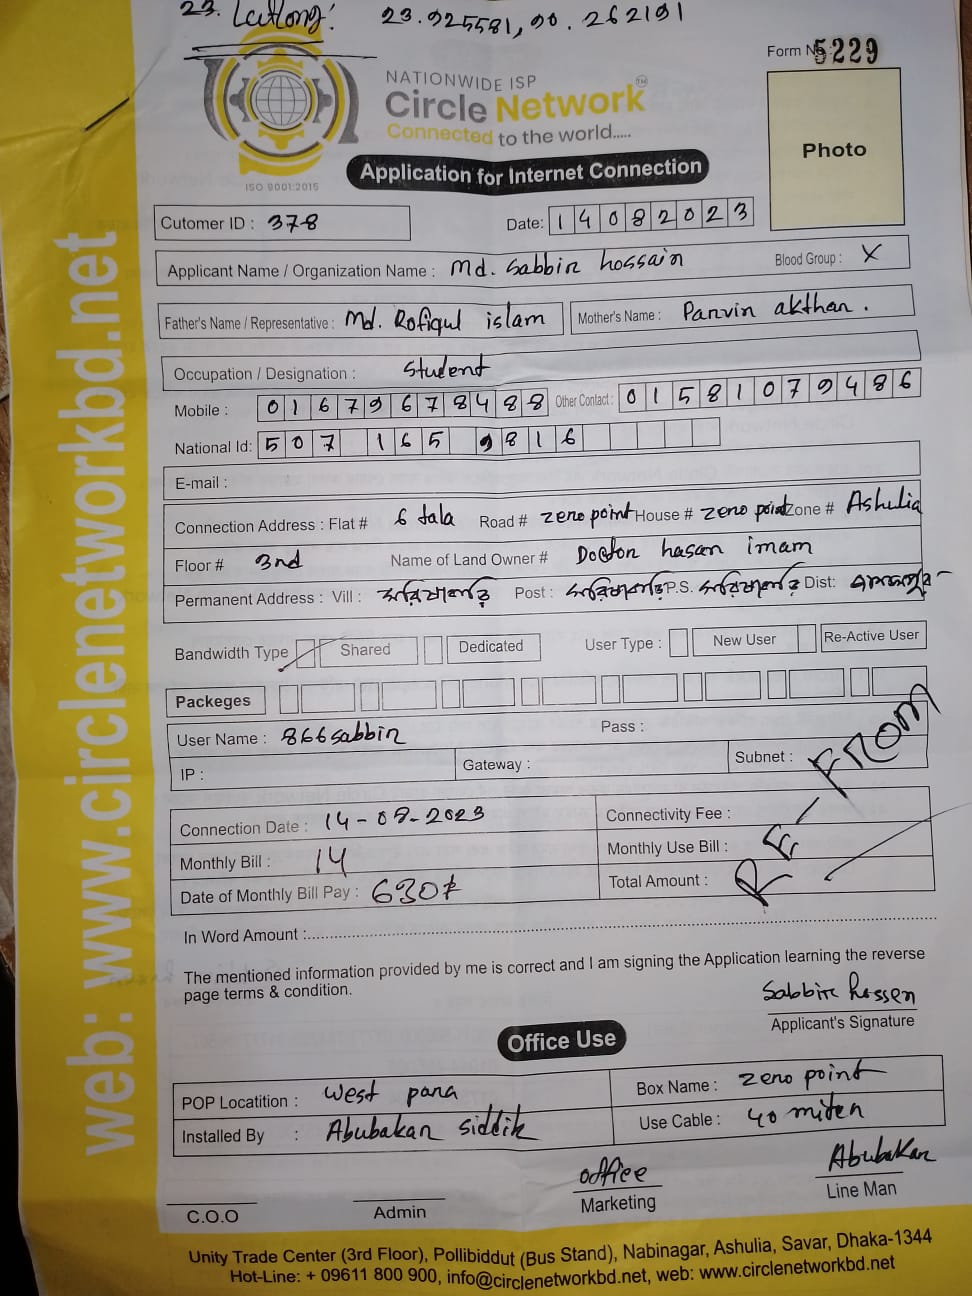 23. Latlong: 23.925581, 90.262191
Form No 5229
NATIONWIDE ISP
Circle Network TM
Connected to the world.....
ISO 9001:2015
Photo
Application for Internet Connection
Cutomer ID : 378
Date: 14082023
Applicant Name / Organization Name : Md. Sabbir hossain Blood Group : X
Father's Name / Representative : Md. Rofiqul islam Mother's Name : Parvin akthar.
Occupation / Designation : Student
Mobile : 01679678488 Other Contact : 01581079486
National Id: 507 165 9816
E-mail :
Connection Address : Flat # 6 tala Road # zero point House # zero point Zone # Ashulia
Floor # 3nd Name of Land Owner # Doctor hasan imam
Permanent Address : Vill : Post : P.S. Dist:
Bandwidth Type Shared Dedicated User Type : New User Re-Active User
Packeges
User Name : 866sabbir Pass :
IP : Gateway : Subnet :
From
Connection Date : 14-08-2023 Connectivity Fee :
Monthly Bill : 14 Monthly Use Bill :
Date of Monthly Bill Pay : 630৳ Total Amount :
In Word Amount :
The mentioned information provided by me is correct and I am signing the Application learning the reverse
page terms & condition.
Sabbir hossen
Applicant's Signature
Office Use
POP Locatition : West para Box Name : zero point
Installed By : Abubakar siddik Use Cable : 40 miter
office Abubakar
C.O.O Admin Marketing Line Man
Unity Trade Center (3rd Floor), Pollibiddut (Bus Stand), Nabinagar, Ashulia, Savar, Dhaka-1344
Hot-Line: + 09611 800 900, info@circlenetworkbd.net, web: www.circlenetworkbd.net
web: www.circlenetworkbd.net